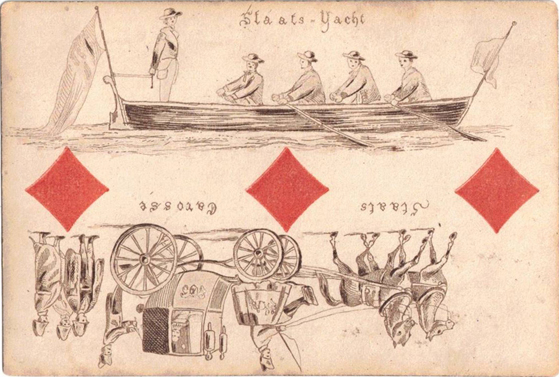 Staats-Yacht
Staats
Carosse